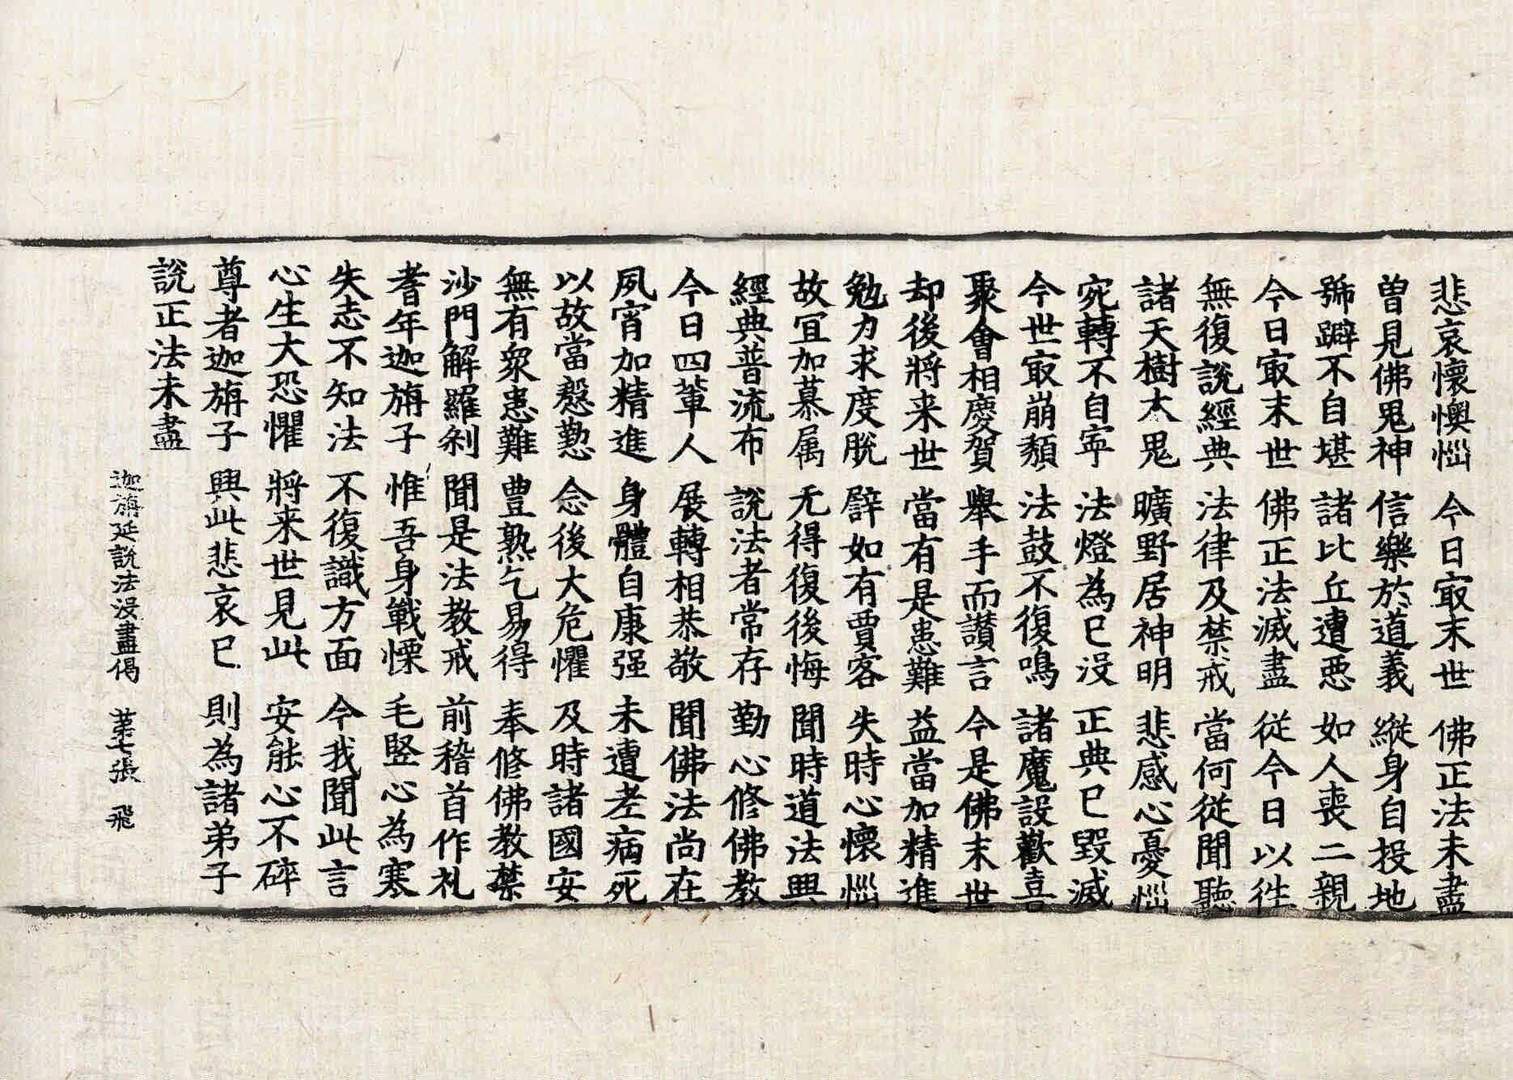 悲哀懷懊惱　今日㝡末世　佛正法未盡
曾見佛鬼神　信樂於道義　縱身自投地
號躃不自堪　諸比丘遭惡　如人喪二親
今日㝡末世　佛正法滅盡　從今日以往
無復說經典　法律及禁戒　當何從聞聽
諸天樹木鬼　曠野居神明　悲感心憂惱
宛轉不自寧　法燈為已没　正典已毀滅
今世㝡崩頹　法鼓不復鳴　諸魔設歡喜
聚會相慶賀　舉手而讃言　今是佛末世
却後將来世　當有是患難　益當加精進
勉力求度脫　譬如有賈客　失時心懷惱
故宜加慕属　无得復後悔　聞時道法興
經典普流布　說法者常存　勤心修佛教
今日四輩人　展轉相恭敬　聞佛法尚在
夙宵加精進　身體自康强　未遭老病死
以故當慇懃　念後大危懼　及時諸國安
無有衆患難　豊熟乞易得　奉修佛教禁
沙門解羅剎　聞是法教戒　前稽首作礼
耆年迦旃子　惟吾身戰慄　毛竪心為寒
失志不知法　不復識方面　今我聞此言
心生大恐懼　將来世見此　安能心不碎
尊者迦旃子　興此悲哀已　則為諸弟子
說正法未盡
迦旃延說法没盡偈　苐七張　飛